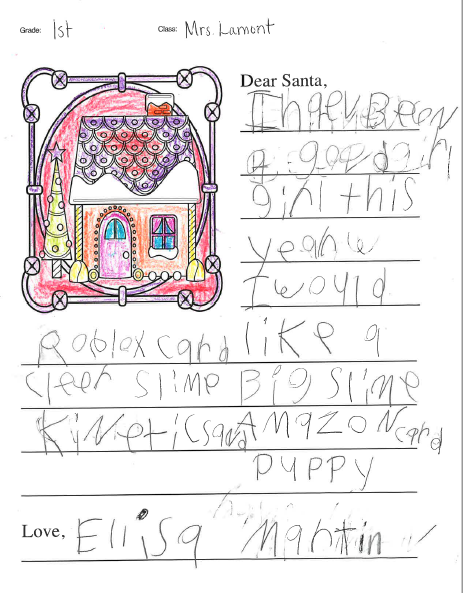 Grade: 1st Class: Mrs. Lamont
Dear Santa,
I haev Been
a good girl
girl this
yeah
I would
Roblox card like a
cleer slime Big slime
Kineticsand Amazon card
puppy
Love, Elisa Martin